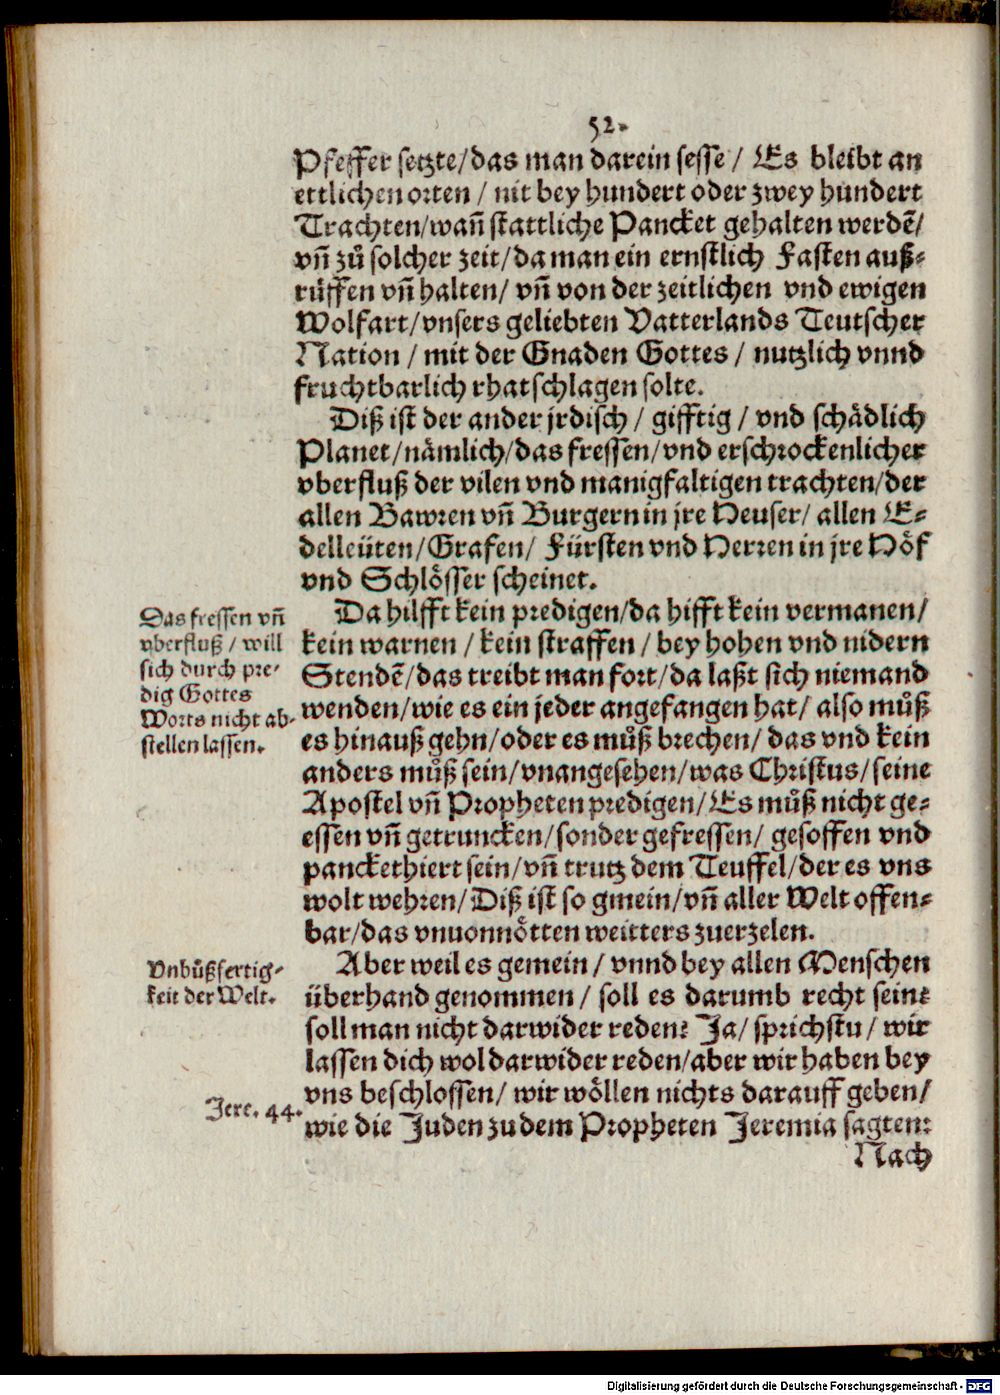 52.
Pfeffer setzte/das man darein sesse / Es bleibt an
ettlichen orten / nit bey hundert oder zwey hundert
Trachten/wañ stattliche Pancket gehalten werdē/
vñ zů solcher zeit/da man ein ernstlich Fasten auß-
rüffen vñ halten/ vñ von der zeitlichen vnd ewigen
Wolfart/vnsers geliebten Vatterlands Teutscher
Nation / mit der Gnaden Gottes / nutzlich vnnd
fruchtbarlich rhatschlagen solte.
Diß ist der ander jrdisch / gifftig / vnd schädlich
Planet/nämlich/das fressen/vnd erschrockenlicher
vberfluß der vilen vnd manigfaltigen trachten/der
allen Bawren vñ Burgern in jre Heuser/ allen E-
delleüten/Grafen/ Fürsten vnd Herren in jre Höf
vnd Schlösser scheinet.
Das fressen vñ
vberfluß / will
sich durch pre-
dig Gottes
Worts nicht ab-
stellen lassen.
Da hilfft kein predigen/da hifft kein vermanen/
kein warnen / kein straffen / bey hohen vnd nidern
Stendē/das treibt man fort/da laßt sich niemand
wenden/wie es ein jeder angefangen hat/ also můß
es hinauß gehn/oder es můß brechen/ das vnd kein
anders můß sein/vnangesehen/was Christus/seine
Apostel vñ Propheten predigen/Es můß nicht ge-
essen vñ getruncken/sonder gefressen/ gesoffen vnd
panckethiert sein/vñ trutz dem Teuffel/der es vns
wolt wehren/Diß ist so gmein/vñ aller Welt offen-
bar/das vnuonnötten weitters zuerzelen.
Vnbůßfertig-
keit der Welt.
Aber weil es gemein / vnnd bey allen Menschen
überhand genommen / soll es darumb recht sein?
soll man nicht darwider reden? Ja/ sprichstu / wir
lassen dich wol darwider reden/aber wir haben bey
vns beschlossen/ wir wöllen nichts darauff geben/
Jere. 44.
wie die Juden zu dem Propheten Jeremia sagten:
Nach
Digitalisierung gefördert durch die Deutsche Forschungsgemeinschaft - DFG